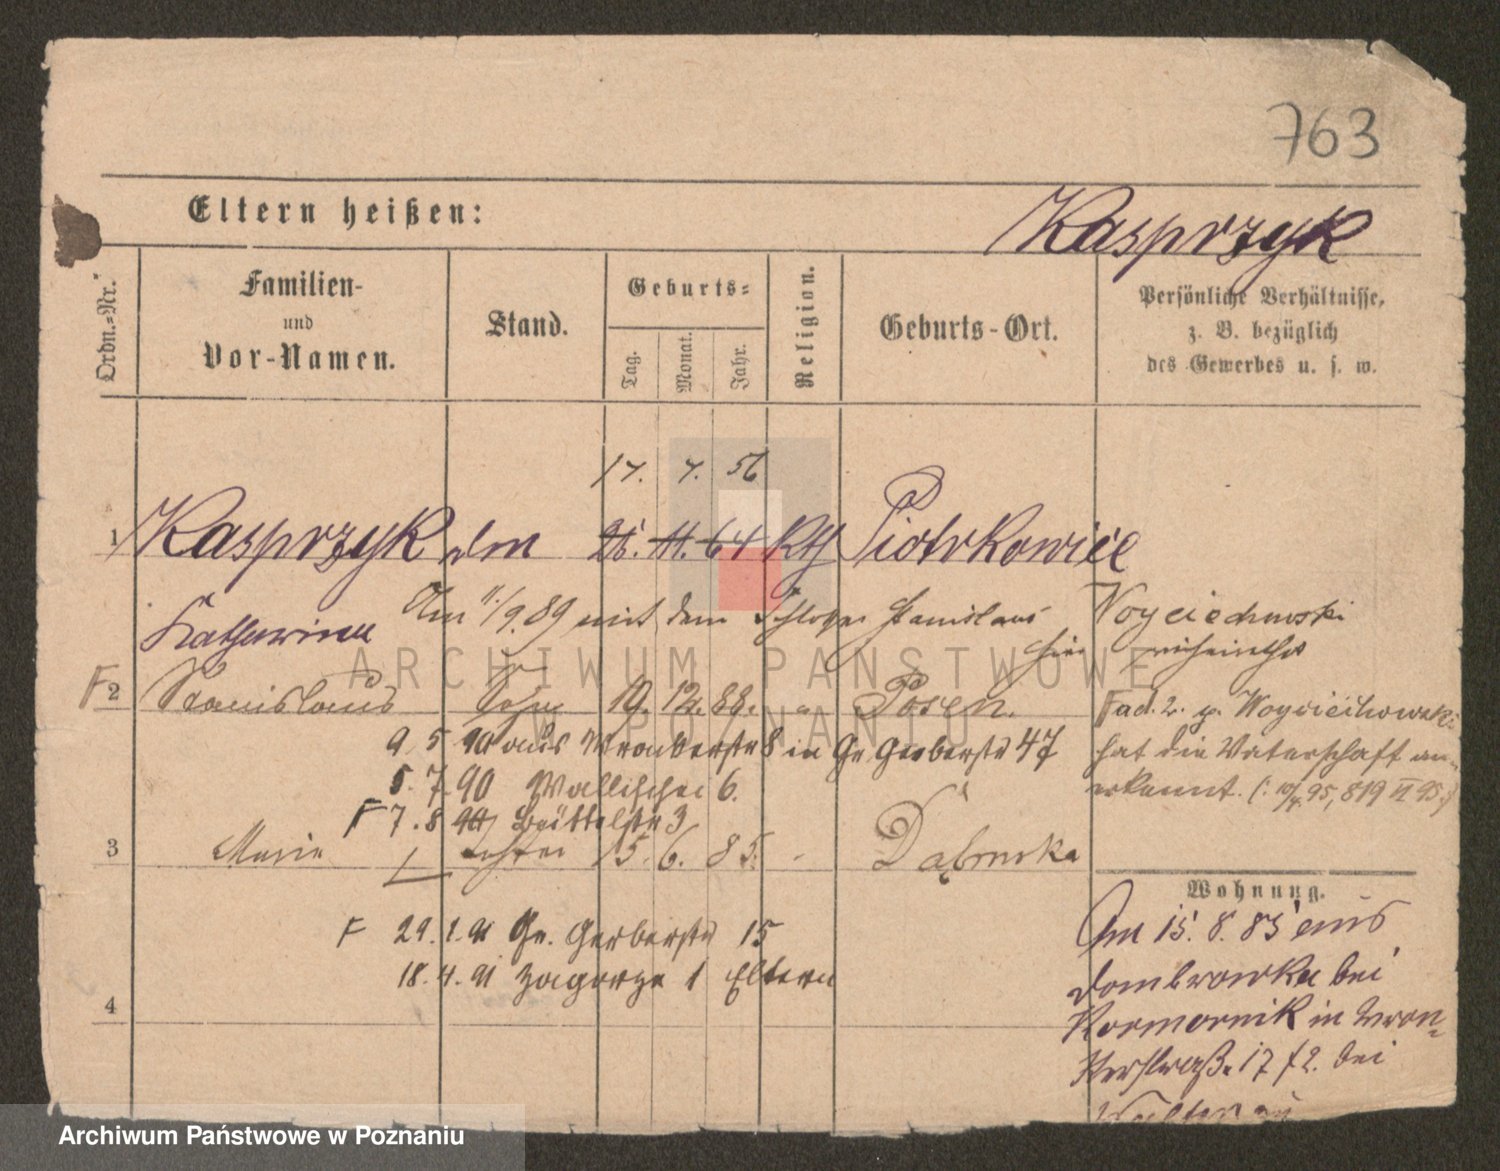 763
Eltern heißen:
Kasprzyk
Ordn.-Nr.
Familien-
und
Vor-Namen.
Stand.
Geburts-
Tag.
Monat.
Jahr.
Religion.
Geburts-Ort.
Persönliche Verhältnisse,
z. B. bezüglich
des Gewerbes u. s. w.
17. 7. 56
1 Kasprzyk 26. 11. 64 Kth Piotrkowice
Am 11/9.89 mit dem Schlosser Stanislaus Woyciechowski
Katharina hier verheirathet
F 2 Stanislaus Sohn 19. 12. 88. Posen.
Fad. 2. p. Woyciechowski
hat die Vaterschaft an-
erkannt. (: 10/4.95, 819 VI 95.)
9 5 90 aus Wronkerstr 8 in Gr. Gerberstr 47
5. 7. 90 Wallischei 6.
F 7. 8 90 Büttelstr 3
3 Marie Tochter 15. 6. 85. - Dąbrowka
Wohnung.
Am 15. 8. 85 aus
Dombrowka bei
Kormornik in Wron-
kerstraße 17 f2. bei
F 29. 1. 91 Gr. Gerberstr 15
18. 4. 91 Zagorze 1 Eltern
4
ARCHIWUM PAŃSTWOWE
W POZNANIU
Archiwum Państwowe w Poznaniu